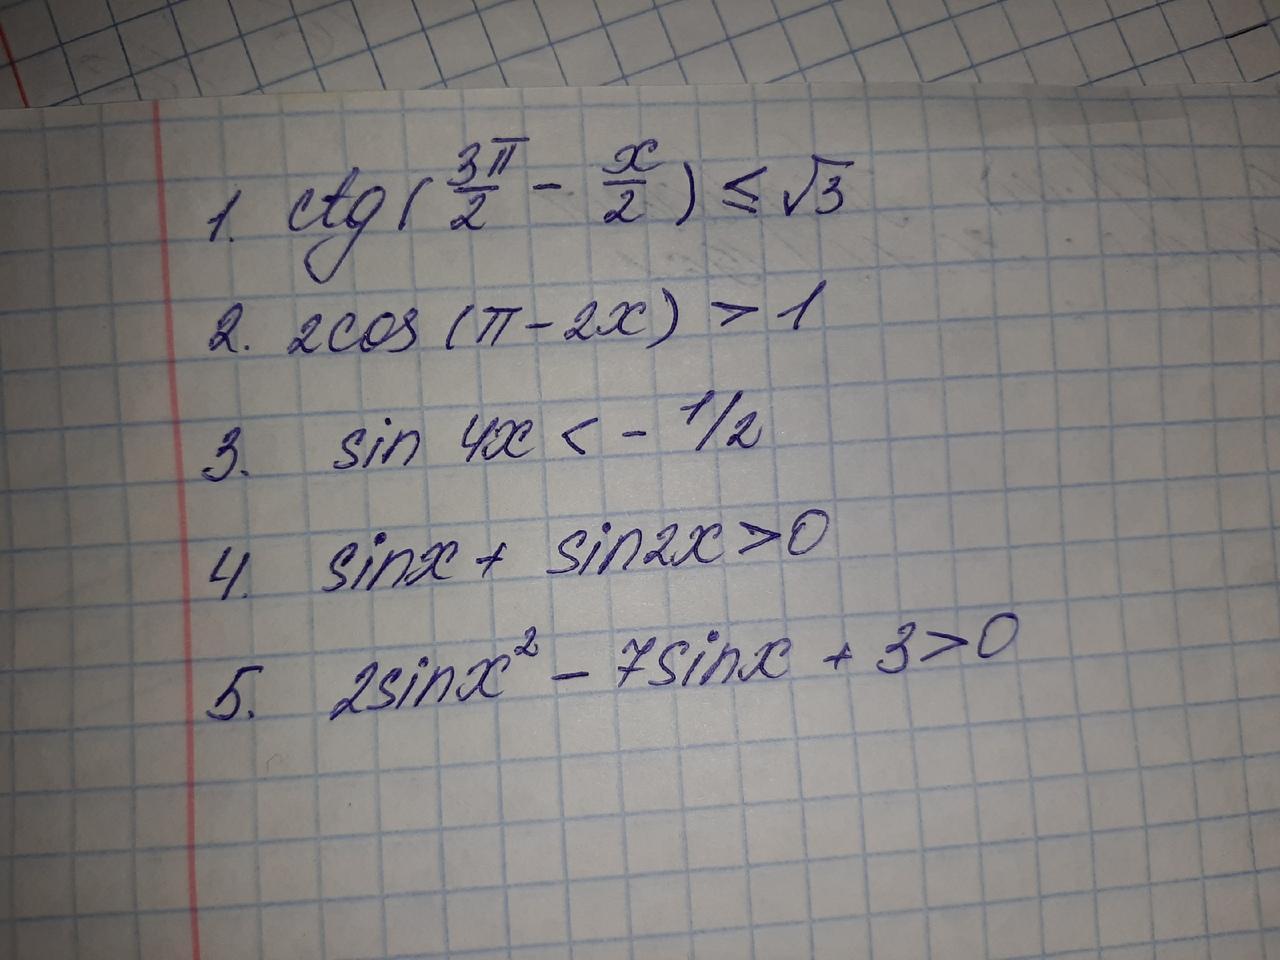 1. ctg(3π/2 - x/2) ≤ √3
2. 2cos(π-2x) > 1
3. sin 4x < - 1/2
4. sinx + sin2x > 0
5. 2sinx² - 7sinx + 3 > 0